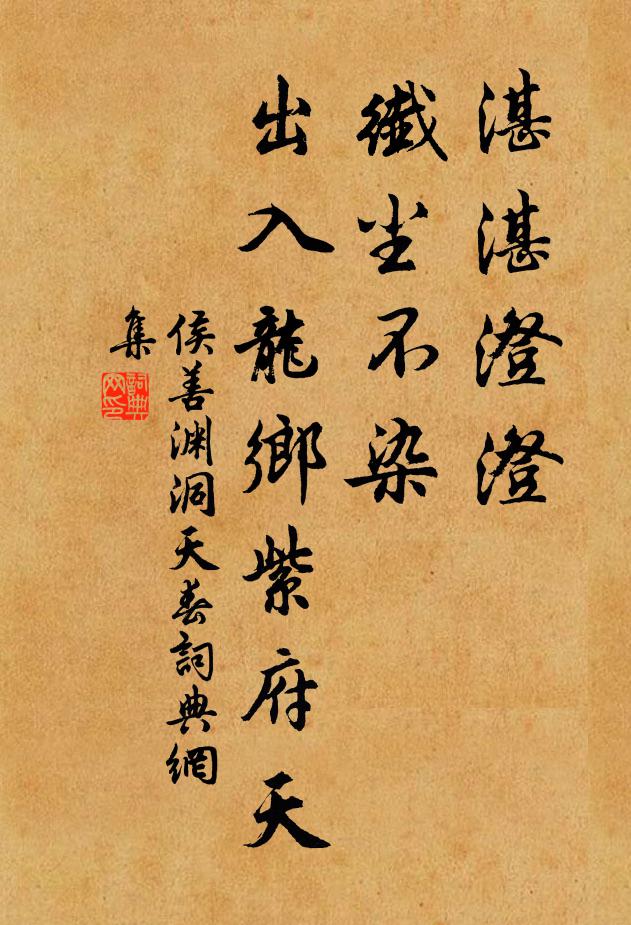 湛湛澄澄
纖尘不染
出入龍鄉紫府天
侯善渊洞天春詞典網
集
詞典
网印